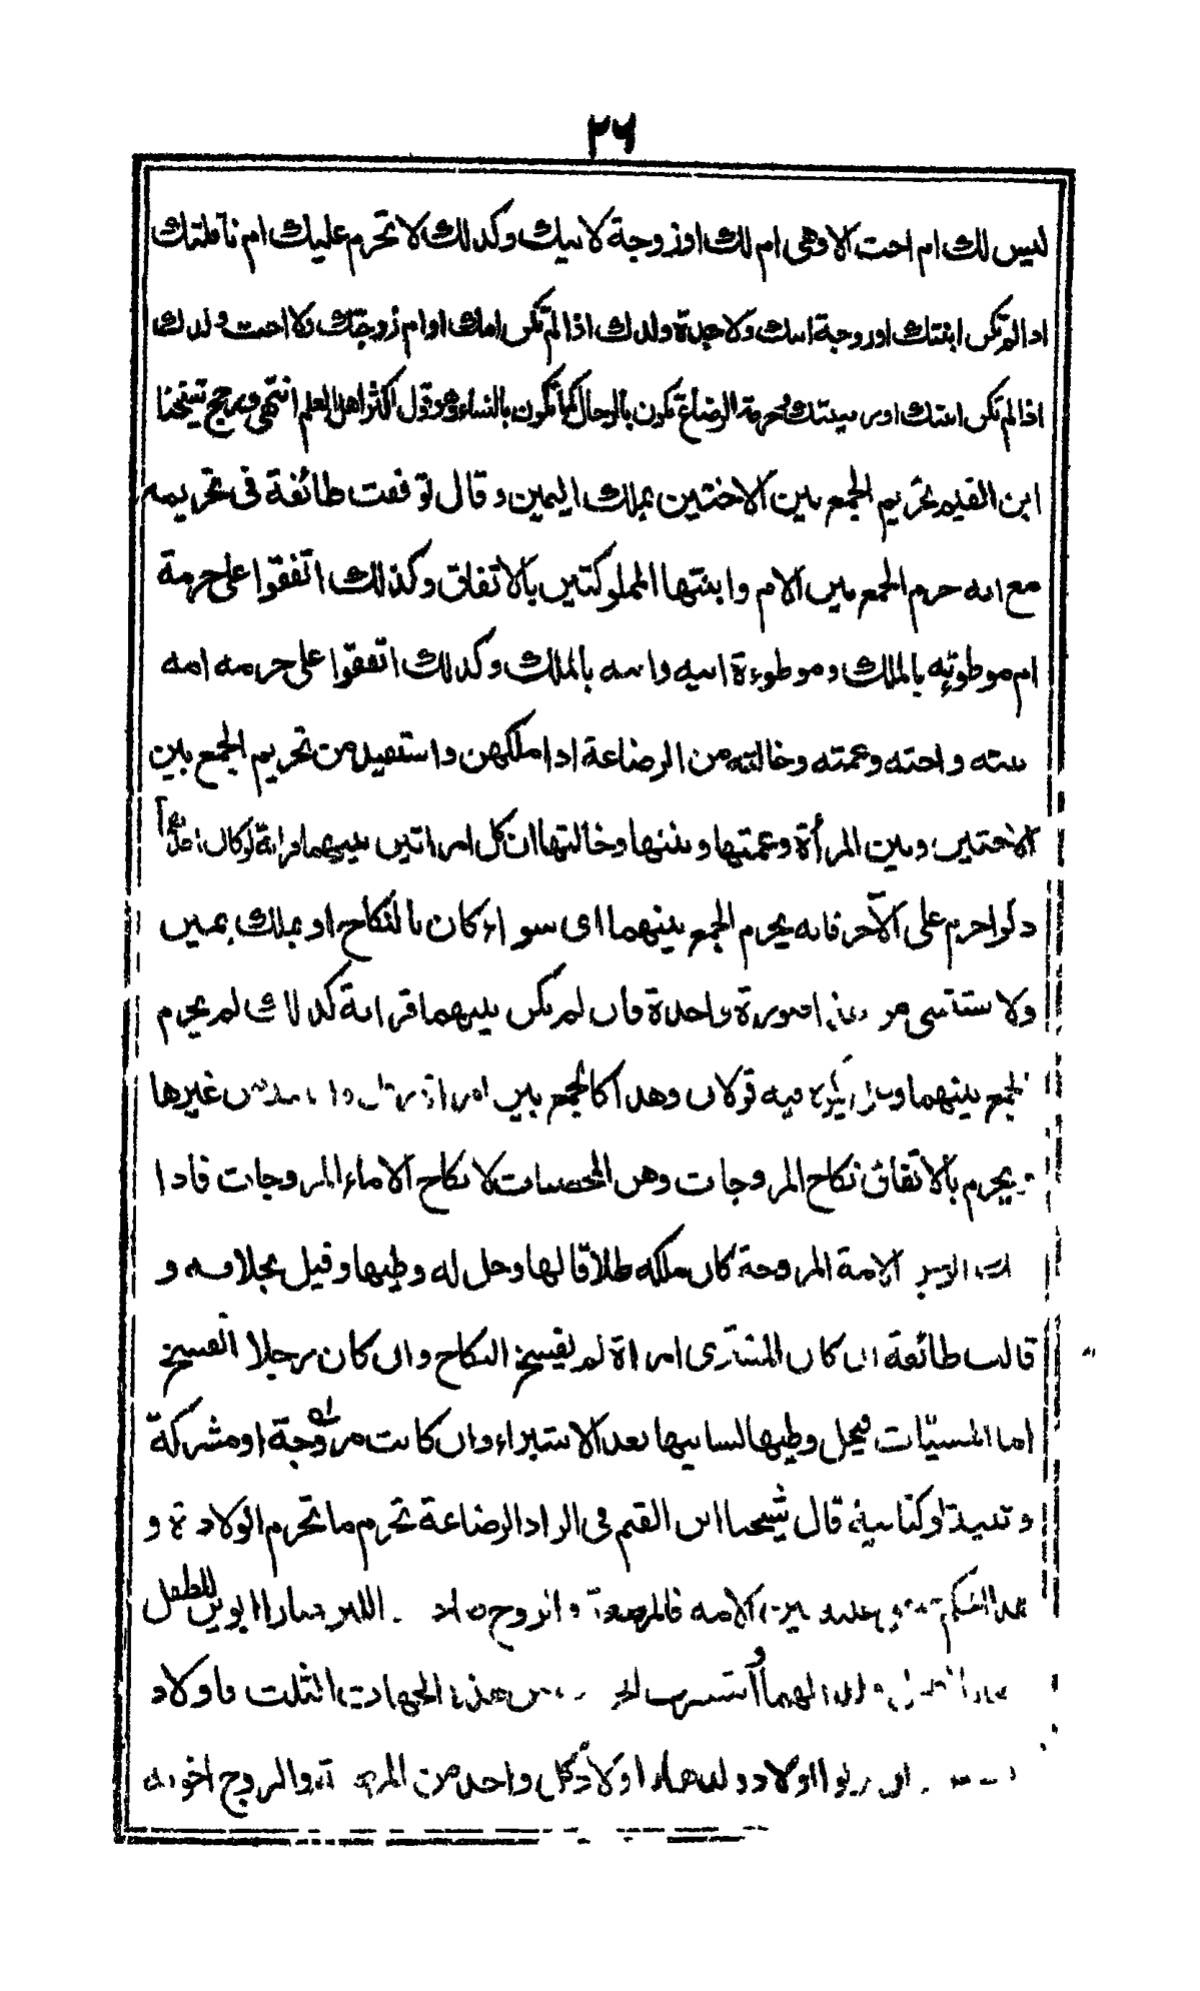 ٢٦
ليس لك ام اخت الا وهى ام لك او زوجة لابيك وكذلك لا تحرم عليك ام نافلتك
اذا لم تكن ابنتك او زوجة ابنك ولا جدة ولدك اذا لم تكن امك او ام زوجتك ولا اخت ولدك
اذا لم تكن ابنتك او ربيبتك وحرمة الرضاع تكون بالرجال كما تكون بالنساء وهو قول اكثر اهل العلم انتهى ورجح شيخنا
ابن القيم تحريم الجمع بين الاختين بملك اليمين وقال توقفت طائفة فى تحريمه
مع انه حرم الجمع بين الام وابنتها المملوكتين بالاتفاق وكذلك اتفقوا على حرمة
ام موطوئه بالملك وموطوءة ابيه وابنه بالملك وكذلك اتفقوا على حرمه امه
بنته واخته وعمته وخالته من الرضاعة اذا ملكهن واستفيد من تحريم الجمع بين
الاختين وبين المرأة وعمتها وبنتها وخالتها ان كل امراتين بينهما قرابة لو كان احدهما
ذكرا حرم على الآخر فانه يحرم الجمع بينهما اى سواء كان بالنكاح او بملك يمين
ولا يستثنى من صورة واحدة فان لم يكن بينهما قرابة كذلك لم يحرم
الجمع بينهما فيه قولان وهذا كالجمع بين امراة رجل غيرها
ويحرم بالاتفاق نكاح المزوجات وهن المحصنات لا نكاح الاماء المزوجات فاذا
الامة المزوجة كان ملكه طلاقا لها وحل له وطيها وقيل بخلافه و
قالت طائفة ان كان المشترى امراة لم يفسخ النكاح وان كان رجلا انفسخ
اما المسبيات فيحل وطيها لسابيها بعد الاستبراء وان كانت مزوجة او مشركة
وثنية او كتابية قال شيخنا ابن القيم فى الزاد الرضاعة تحرم ما تحرم الولادة و
هذا الحكم عليه بين الامة فالمرضعة والزوج صاحب اللبن صارا ابوين للطفل
لهما انتشرت من هذه الجهات الثلث فاولاد
اولاد ولدهما اولاد كل واحد من المرضعة والزوج اخوته